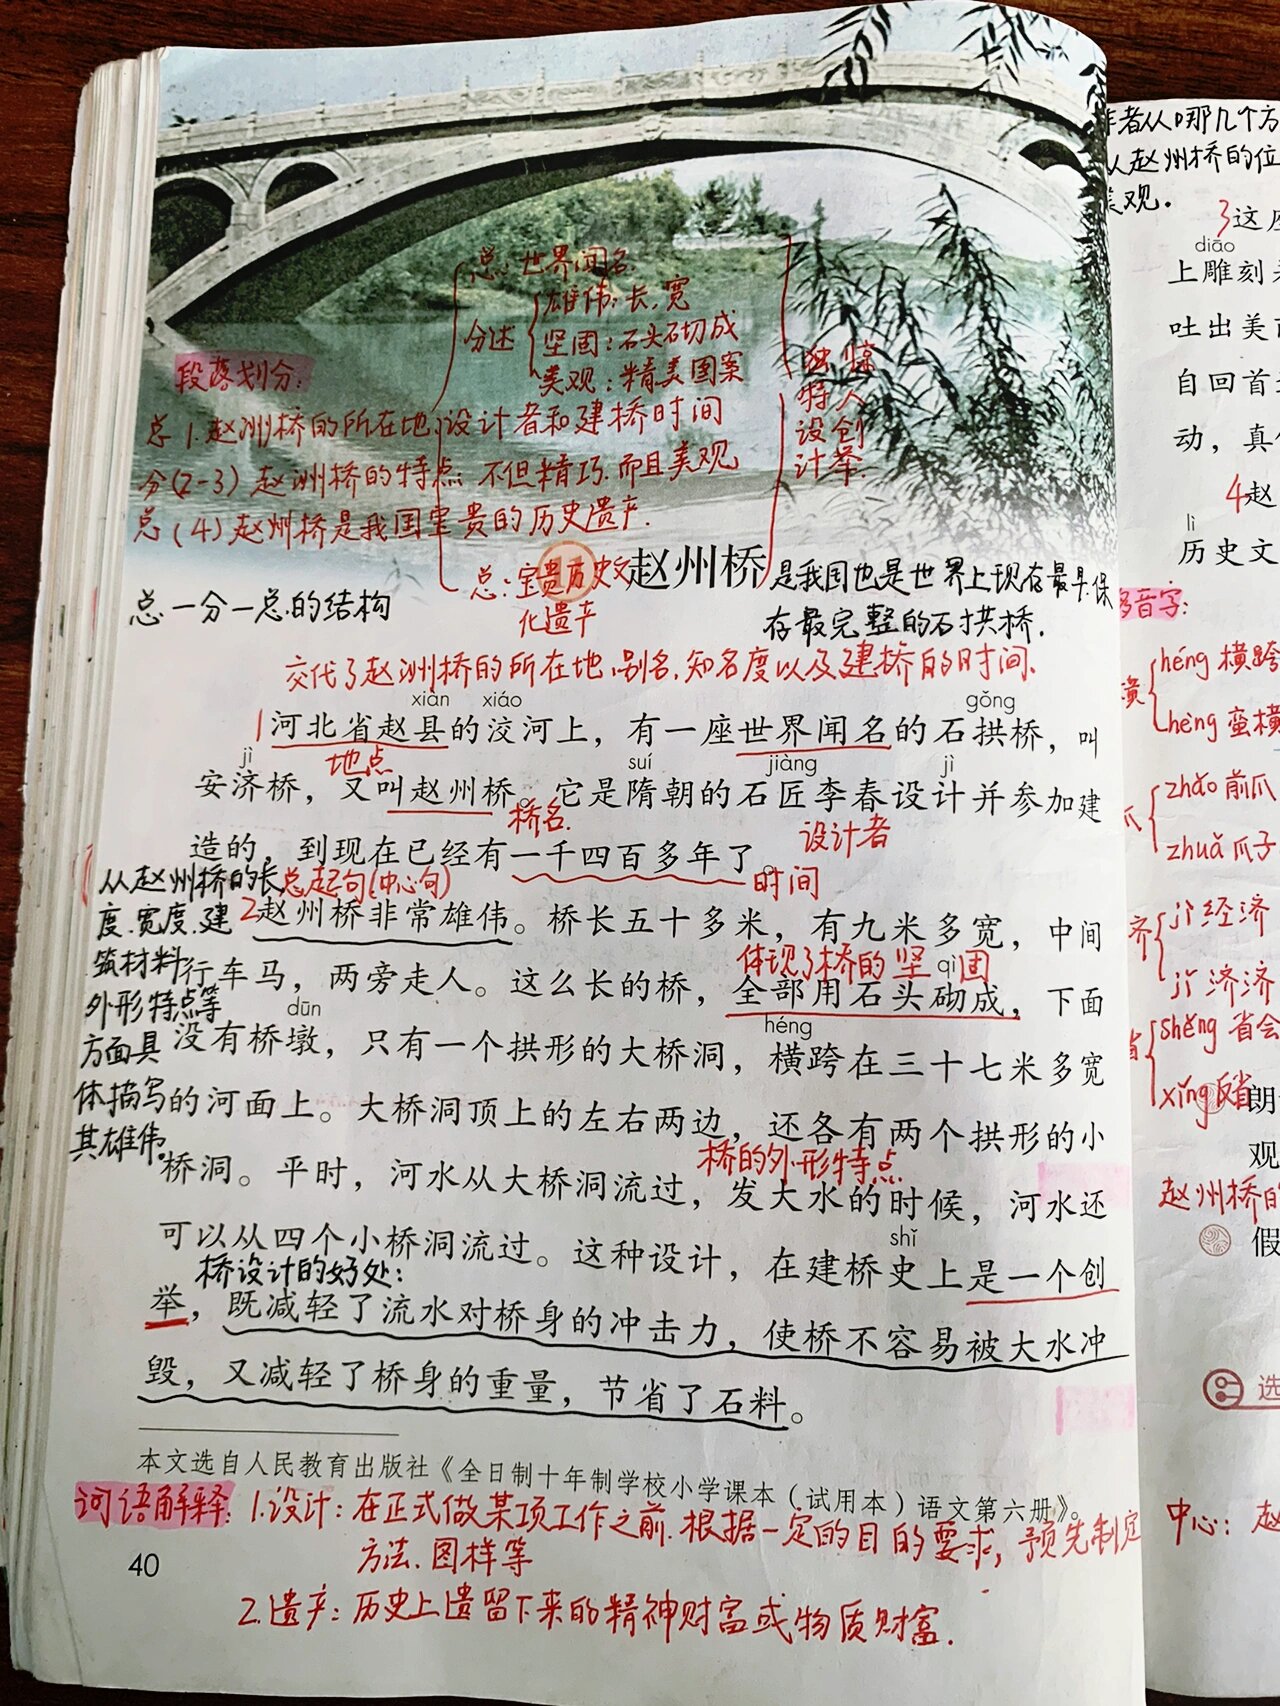 总：世界闻名
分述
雄伟：长、宽
坚固：石头砌成
美观：精美图案
独特设计
惊人创举
段落划分：
总 1.赵州桥的所在地、设计者和建桥时间
分(2-3) 赵州桥的特点 不但精巧.而且美观
总 (4) 赵州桥是我国宝贵的历史遗产.
总：宝贵历史文
化遗产
11 赵州桥
是我国也是世界上现存最早.保
存最完整的石拱桥.
总一分一总的结构
交代了赵州桥的所在地、别名、知名度以及建桥的时间.
xiàn xiáo gǒng
1河北省赵县的洨河上，有一座世界闻名的石拱桥，叫
jì 地点 suí jiàng jì
安济桥，又叫赵州桥。它是隋朝的石匠李春设计并参加建
桥名. 设计者
造的，到现在已经有一千四百多年了。
时间
从赵州桥的长
度、宽度、建
筑材料
外形特点等
方面具
体描写
其雄伟。
总起句(中心句)
2赵州桥非常雄伟。桥长五十多米，有九米多宽，中间
体现了桥的坚固 qì
行车马，两旁走人。这么长的桥，全部用石头砌成，下面
dūn héng
没有桥墩，只有一个拱形的大桥洞，横跨在三十七米多宽
的河面上。大桥洞顶上的左右两边，还各有两个拱形的小
桥的外形特点
桥洞。平时，河水从大桥洞流过，发大水的时候，河水还
shǐ
可以从四个小桥洞流过。这种设计，在建桥史上是一个创
桥设计的好处：
举，既减轻了流水对桥身的冲击力，使桥不容易被大水冲
毁，又减轻了桥身的重量，节省了石料。
本文选自人民教育出版社《全日制十年制学校小学课本（试用本）语文第六册》。
词语解释：1.设计：在正式做某项工作之前.根据一定的目的要求，预先制定
方法、图样等
40
2.遗产：历史上遗留下来的精神财富或物质财富.
者从哪几个方
从赵州桥的位
美观.
3这座
diāo
上雕刻
吐出美
自回首
动，真
4赵
lì
历史文
多音字：
横
héng 横跨
hèng 蛮横
爪
zhǎo 前爪
zhuǎ 爪子
济
jì 经济
jǐ 济济
省
shěng 省会
xǐng 反省
朗
观
赵州桥的
假
选
中心：赵